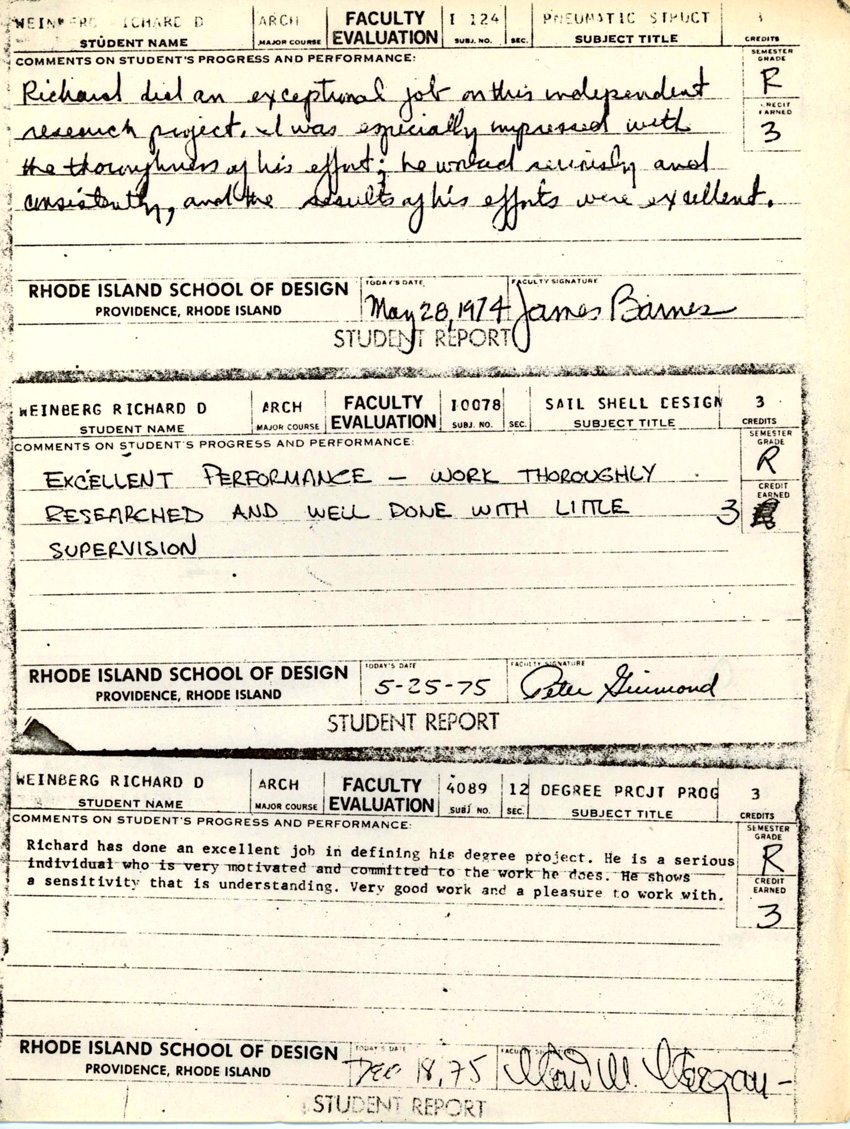 WEINBERG RICHARD D ARCH FACULTY EVALUATION I 124 PNEUMATIC STRUCT
STUDENT NAME MAJOR COURSE SUBJ. NO. SEC. SUBJECT TITLE CREDITS
COMMENTS ON STUDENT'S PROGRESS AND PERFORMANCE: SEMESTER GRADE
Richard did an exceptional job on this independent R
research project. I was especially impressed with CREDIT EARNED 3
the thoroughness of his effort; he worked seriously and
consistently, and the results of his efforts were excellent.
RHODE ISLAND SCHOOL OF DESIGN TODAY'S DATE FACULTY SIGNATURE
PROVIDENCE, RHODE ISLAND May 28, 1974 James Barnes
STUDENT REPORT
WEINBERG RICHARD D ARCH FACULTY EVALUATION I0078 SAIL SHELL DESIGN 3
STUDENT NAME MAJOR COURSE SUBJ. NO. SEC. SUBJECT TITLE CREDITS
COMMENTS ON STUDENT'S PROGRESS AND PERFORMANCE: SEMESTER GRADE
EXCELLENT PERFORMANCE – WORK THOROUGHLY R
RESEARCHED AND WELL DONE WITH LITTLE CREDIT EARNED 3
SUPERVISION
RHODE ISLAND SCHOOL OF DESIGN TODAY'S DATE FACULTY SIGNATURE
PROVIDENCE, RHODE ISLAND 5-25-75 Peter
STUDENT REPORT
WEINBERG RICHARD D ARCH FACULTY EVALUATION 4089 12 DEGREE PRCJT PROG 3
STUDENT NAME MAJOR COURSE SUBJ. NO. SEC. SUBJECT TITLE CREDITS
COMMENTS ON STUDENT'S PROGRESS AND PERFORMANCE: SEMESTER GRADE
Richard has done an excellent job in defining his degree project. He is a serious R
individual who is very motivated and committed to the work he does. He shows CREDIT EARNED
a sensitivity that is understanding. Very good work and a pleasure to work with. 3
RHODE ISLAND SCHOOL OF DESIGN TODAY'S DATE
PROVIDENCE, RHODE ISLAND Dec 18, 75
STUDENT REPORT